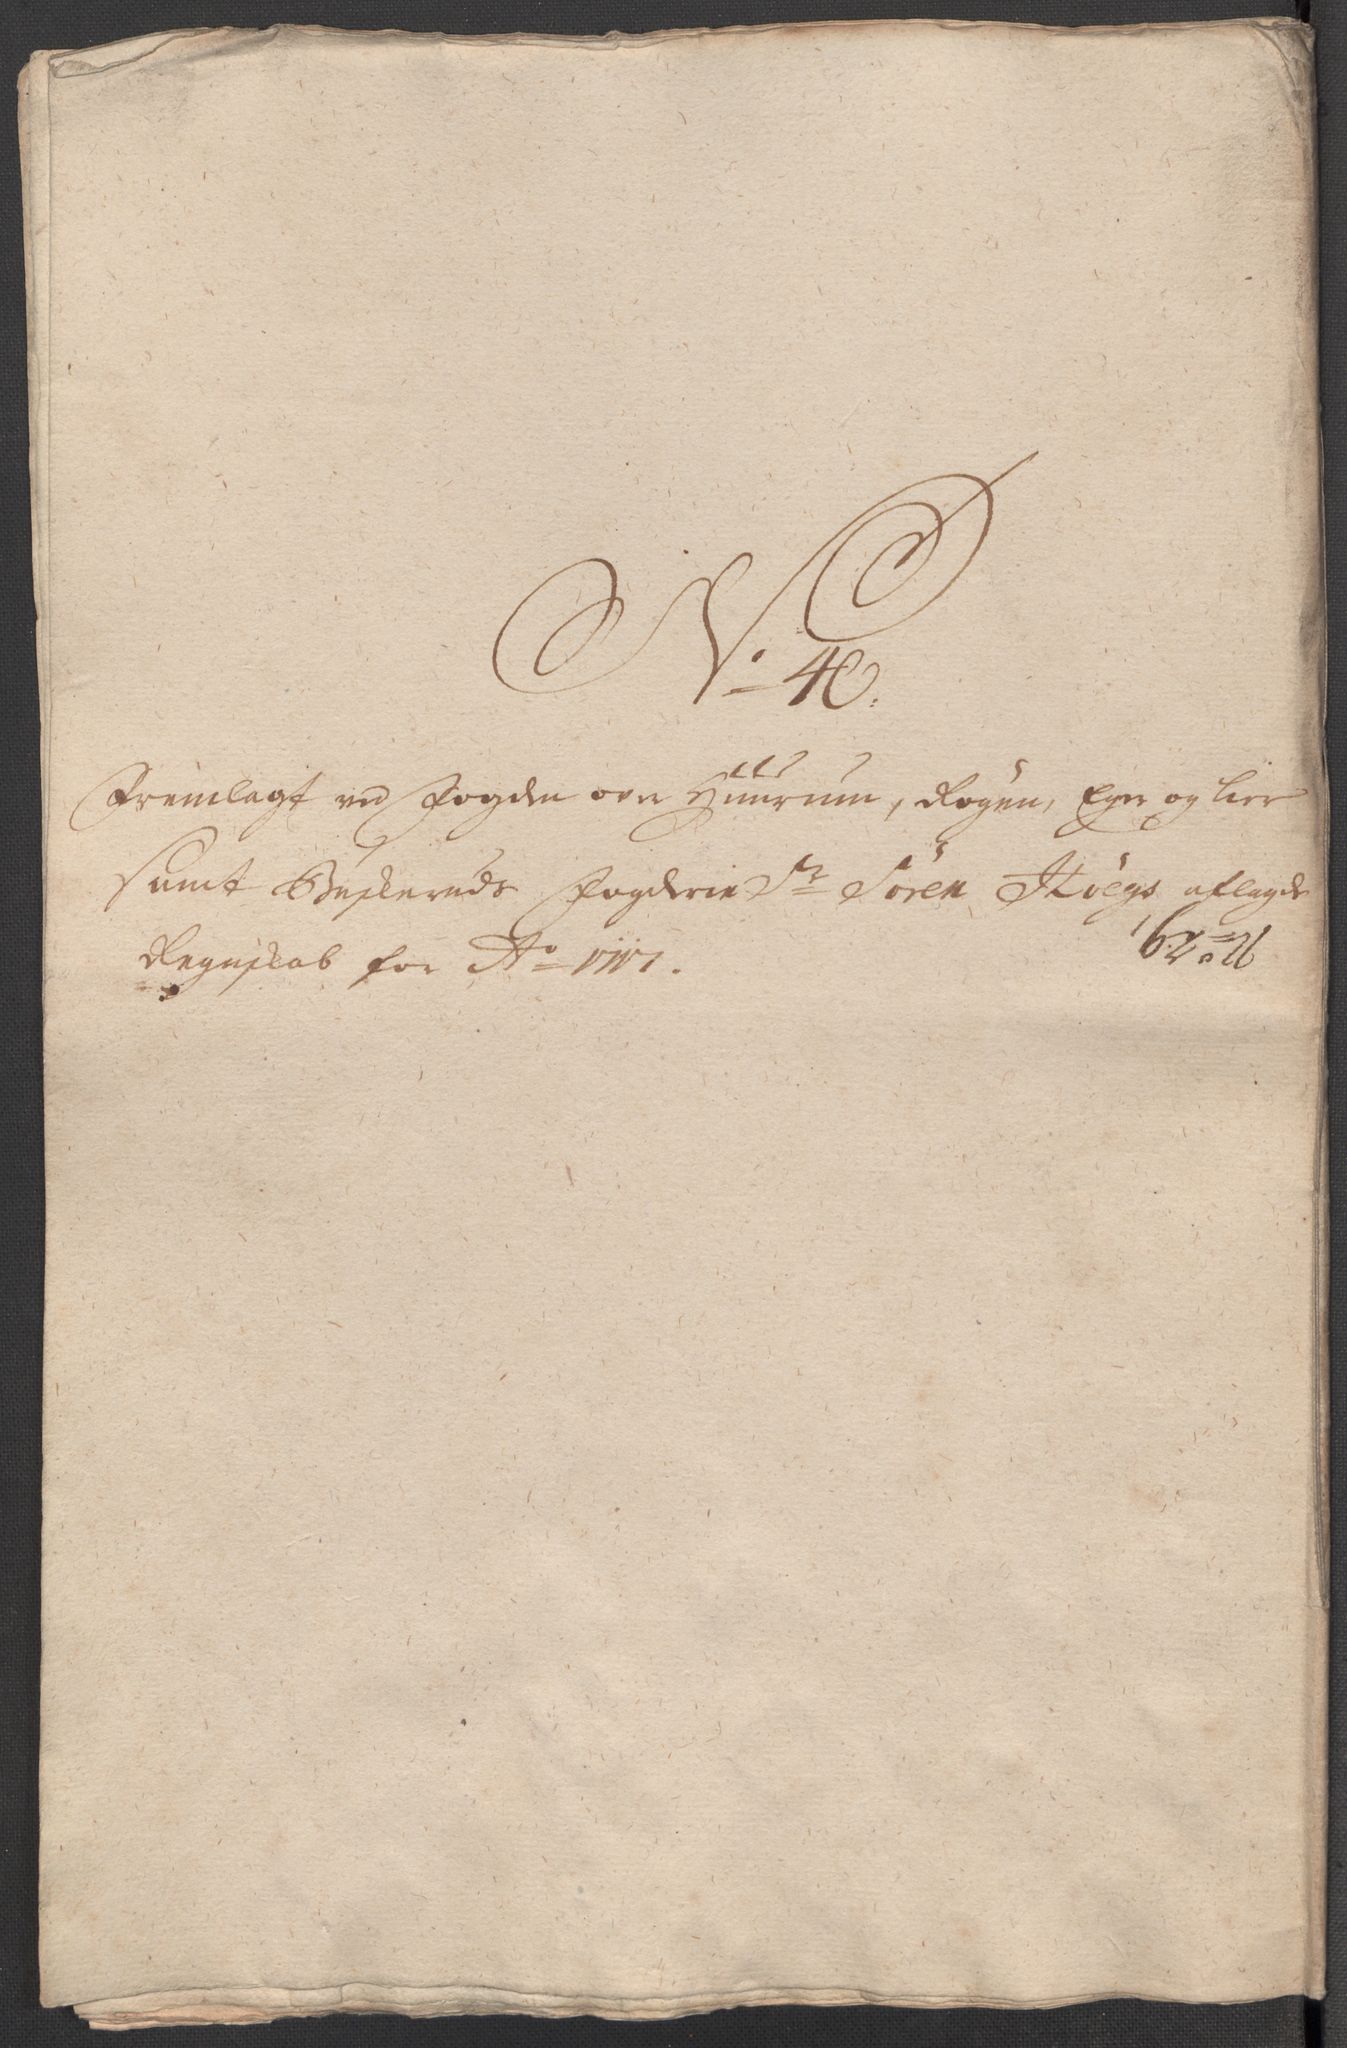 No 40.
Fremlagt ved Fogden over Huurum, Røgen, Eger og Lier
samt Buskeruds Fogderie Sr Sören Høegs aflagde
Regnskab for Ao 1717.